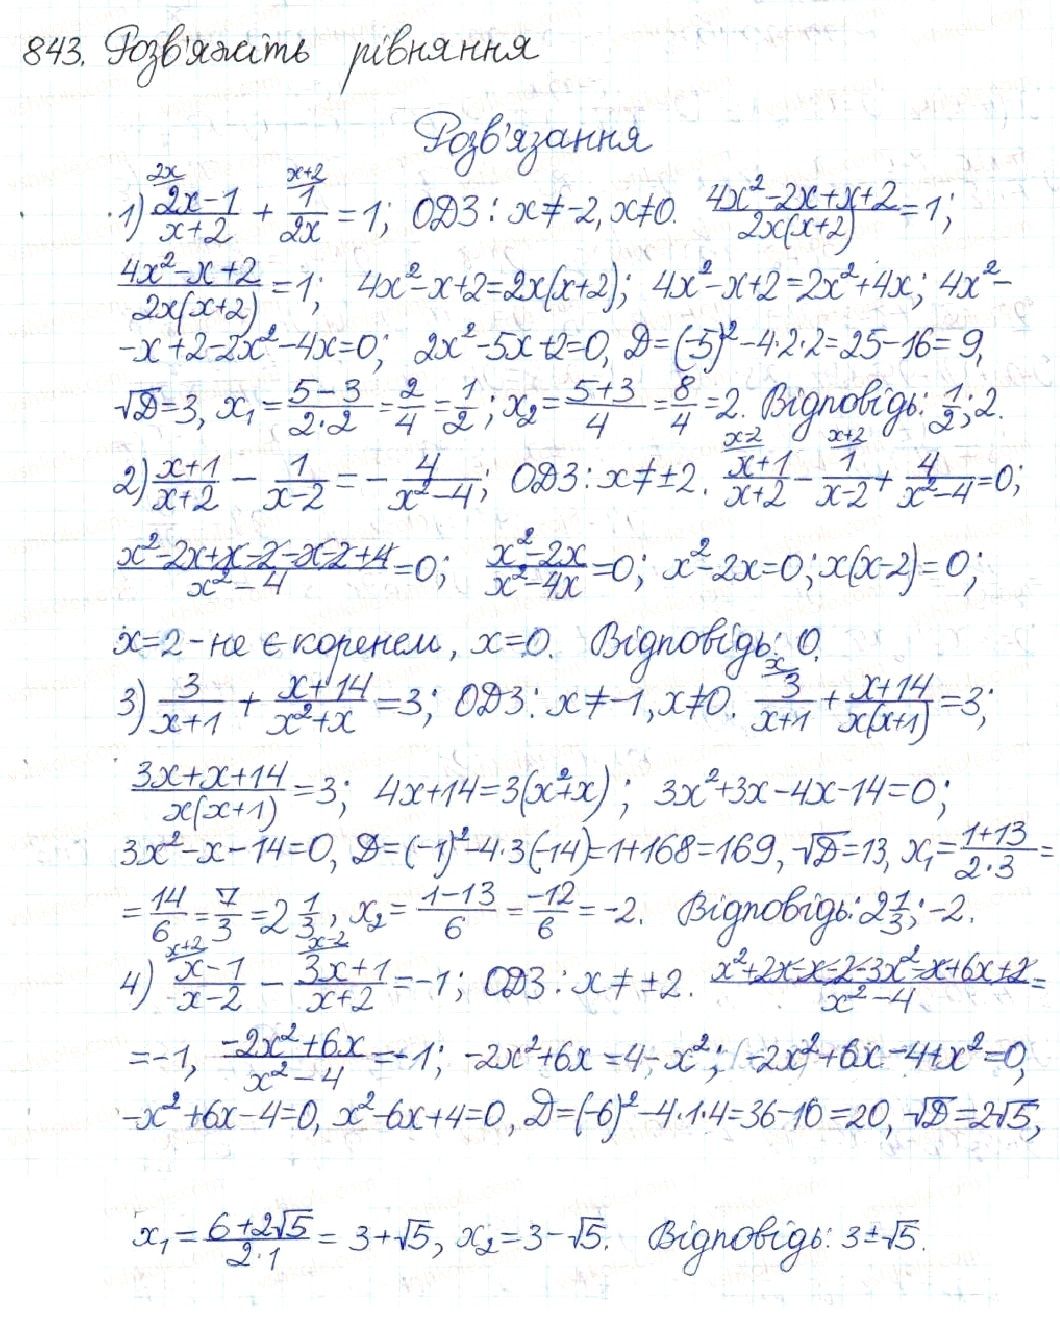 843. Розв'яжіть рівняння
Розв'язання
1) \frac{2x-1}{x+2}^{2x} + \frac{1}{2x}^{x+2} = 1; ОДЗ: x≠-2, x≠0. \frac{4x²-2x+x+2}{2x(x+2)} = 1;
\frac{4x²-x+2}{2x(x+2)} = 1; 4x²-x+2=2x(x+2); 4x²-x+2=2x²+4x; 4x²-
-x+2-2x²-4x=0; 2x²-5x+2=0, D=(-5)²-4·2·2=25-16=9,
√D=3, x₁=\frac{5-3}{2·2}=\frac{2}{4}=\frac{1}{2}; x₂=\frac{5+3}{4}=\frac{8}{4}=2. Відповідь: \frac{1}{2}; 2.
2) \frac{x+1}{x+2} - \frac{1}{x-2} = -\frac{4}{x²-4}; ОДЗ: x≠±2. \frac{x+1}{x+2}^{x-2} - \frac{1}{x-2}^{x+2} + \frac{4}{x²-4}=0;
\frac{x²-2x+x-2-x-2+4}{x²-4}=0; \frac{x²-2x}{x²-4x}=0; x²-2x=0; x(x-2)=0;
x=2-не є коренем, x=0. Відповідь: 0.
3) \frac{3}{x+1} + \frac{x+14}{x²+x} = 3; ОДЗ: x≠-1, x≠0. \frac{3}{x+1}^{x} + \frac{x+14}{x(x+1)} = 3;
\frac{3x+x+14}{x(x+1)}=3; 4x+14=3(x²+x); 3x²+3x-4x-14=0;
3x²-x-14=0, D=(-1)²-4·3(-14)=1+168=169, √D=13, x₁=\frac{1+13}{2·3}=
=\frac{14}{6}=\frac{7}{3}=2\frac{1}{3}, x₂=\frac{1-13}{6}=\frac{-12}{6}=-2. Відповідь: 2\frac{1}{3}; -2.
4) \frac{x-1}{x-2}^{x+2} - \frac{3x+1}{x+2}^{x-2} = -1; ОДЗ: x≠±2. \frac{x²+2x-x-2-3x²-x+6x+2}{x²-4}=
=-1, \frac{-2x²+6x}{x²-4}=-1; -2x²+6x=4-x²; -2x²+6x-4+x²=0,
-x²+6x-4=0, x²-6x+4=0, D=(-6)²-4·1·4=36-16=20, √D=2√5,
x₁=\frac{6+2√5}{2·1}=3+√5, x₂=3-√5. Відповідь: 3±√5.